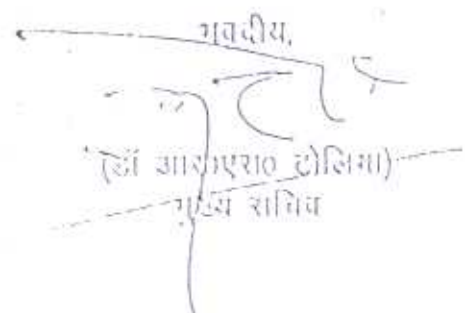 भवदीय,
(डॉ आर०एस० टोलिया)
मुख्य सचिव